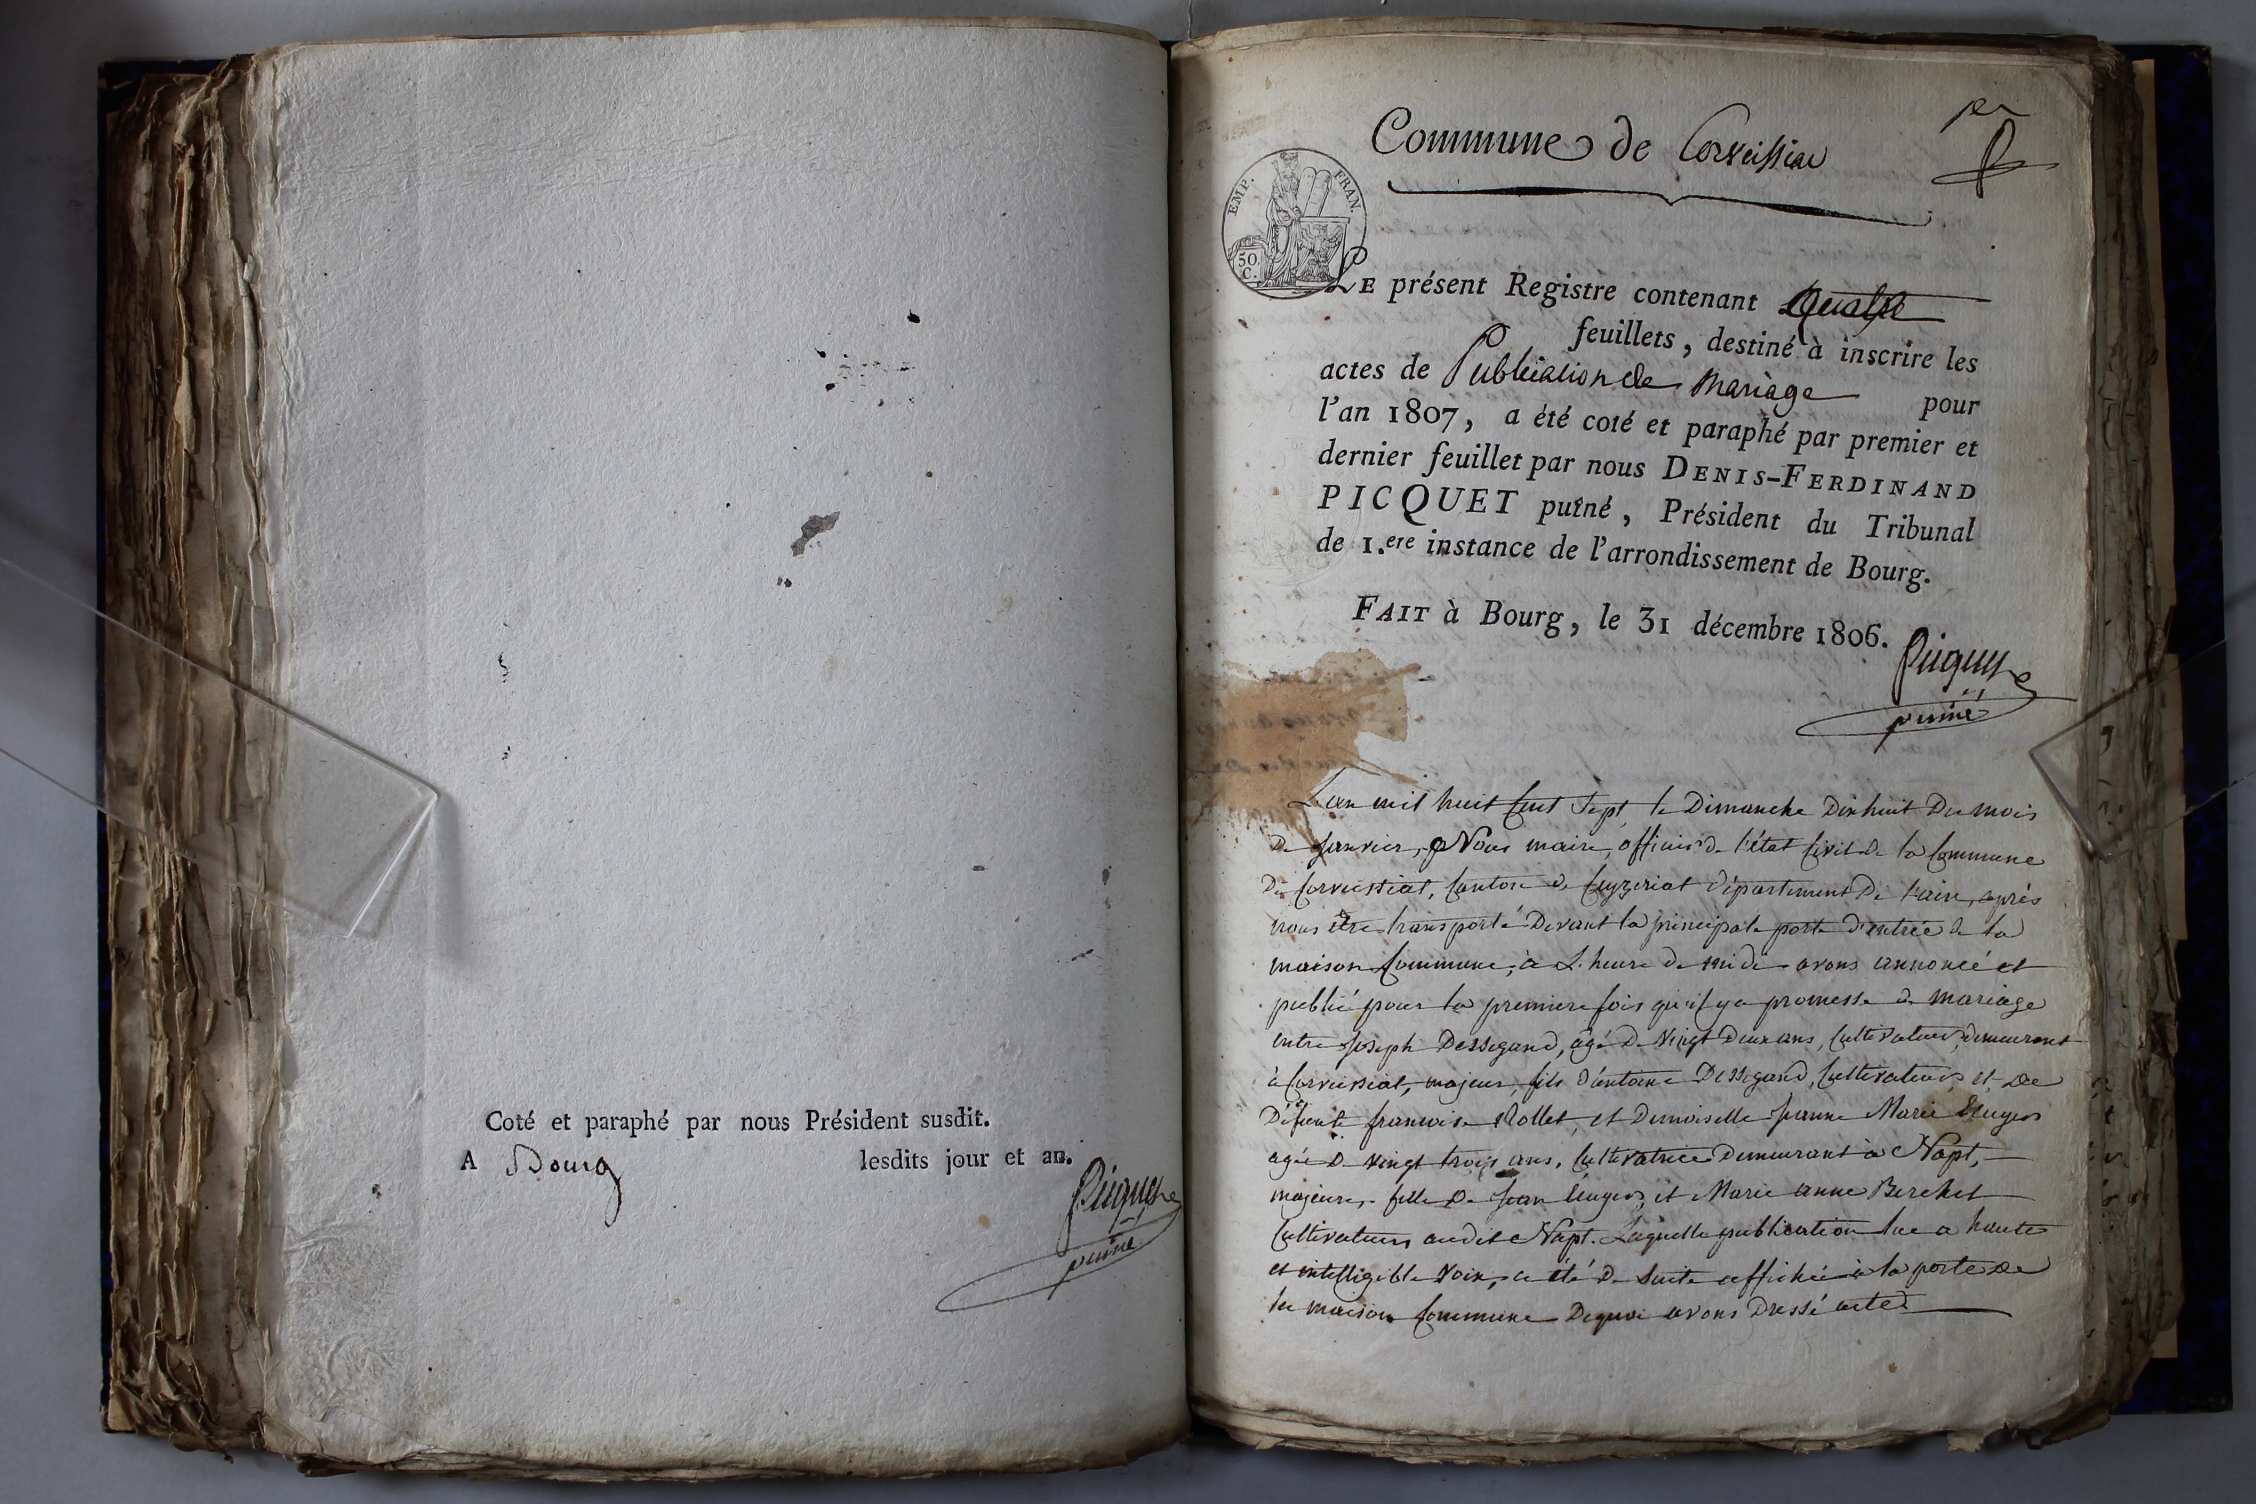 Coté et paraphé par nous Président susdit.
A Bourg lesdits jour et an.
Picquet
puiné
per
Commune de Corveissiat
EMP. FRAN.
50 C.
LE présent Registre contenant Quatre
feuillets, destiné à inscrire les
actes de Publication de Mariage pour
l'an 1807, a été coté et paraphé par premier et
dernier feuillet par nous DENIS-FERDINAND
PICQUET puîné, Président du Tribunal
de 1.ere instance de l'arrondissement de Bourg.
FAIT à Bourg, le 31 décembre 1806.
Picquet
puiné
L'an mil huit Cent Sept, le Dimanche Dix huit Du mois
De Janvier, Nous maire, officier de l'état Civil De la Commune
De Corveissiat, Canton de Ceyzeriat département De l'ain, après
nous être transporté Devant la principale porte d'entrée de la
maison Commune, à L'heure de midi avons annoncé et
publié pour la premiere fois qu'il y a promesse de mariage
entre Joseph Dessegand, âgé De Vingt Deux ans, Cultivateur, demeurant
à Corveissiat, majeur, fils d'antoine Dessegand, Cultivateur, et De
Défunte francoise Rollet, et Demoiselle Jeanne Marie
agée De Vingt trois ans, Cultivatrice Demeurant à Napt,
majeure, fille De Jean et Marie anne Berchet
Cultivateurs audit Napt. Laquelle publication lue a haute
et intelligible Voix, a été De Suite affichée à la porte De
la maison Commune Dequoi avons Dressé acte.